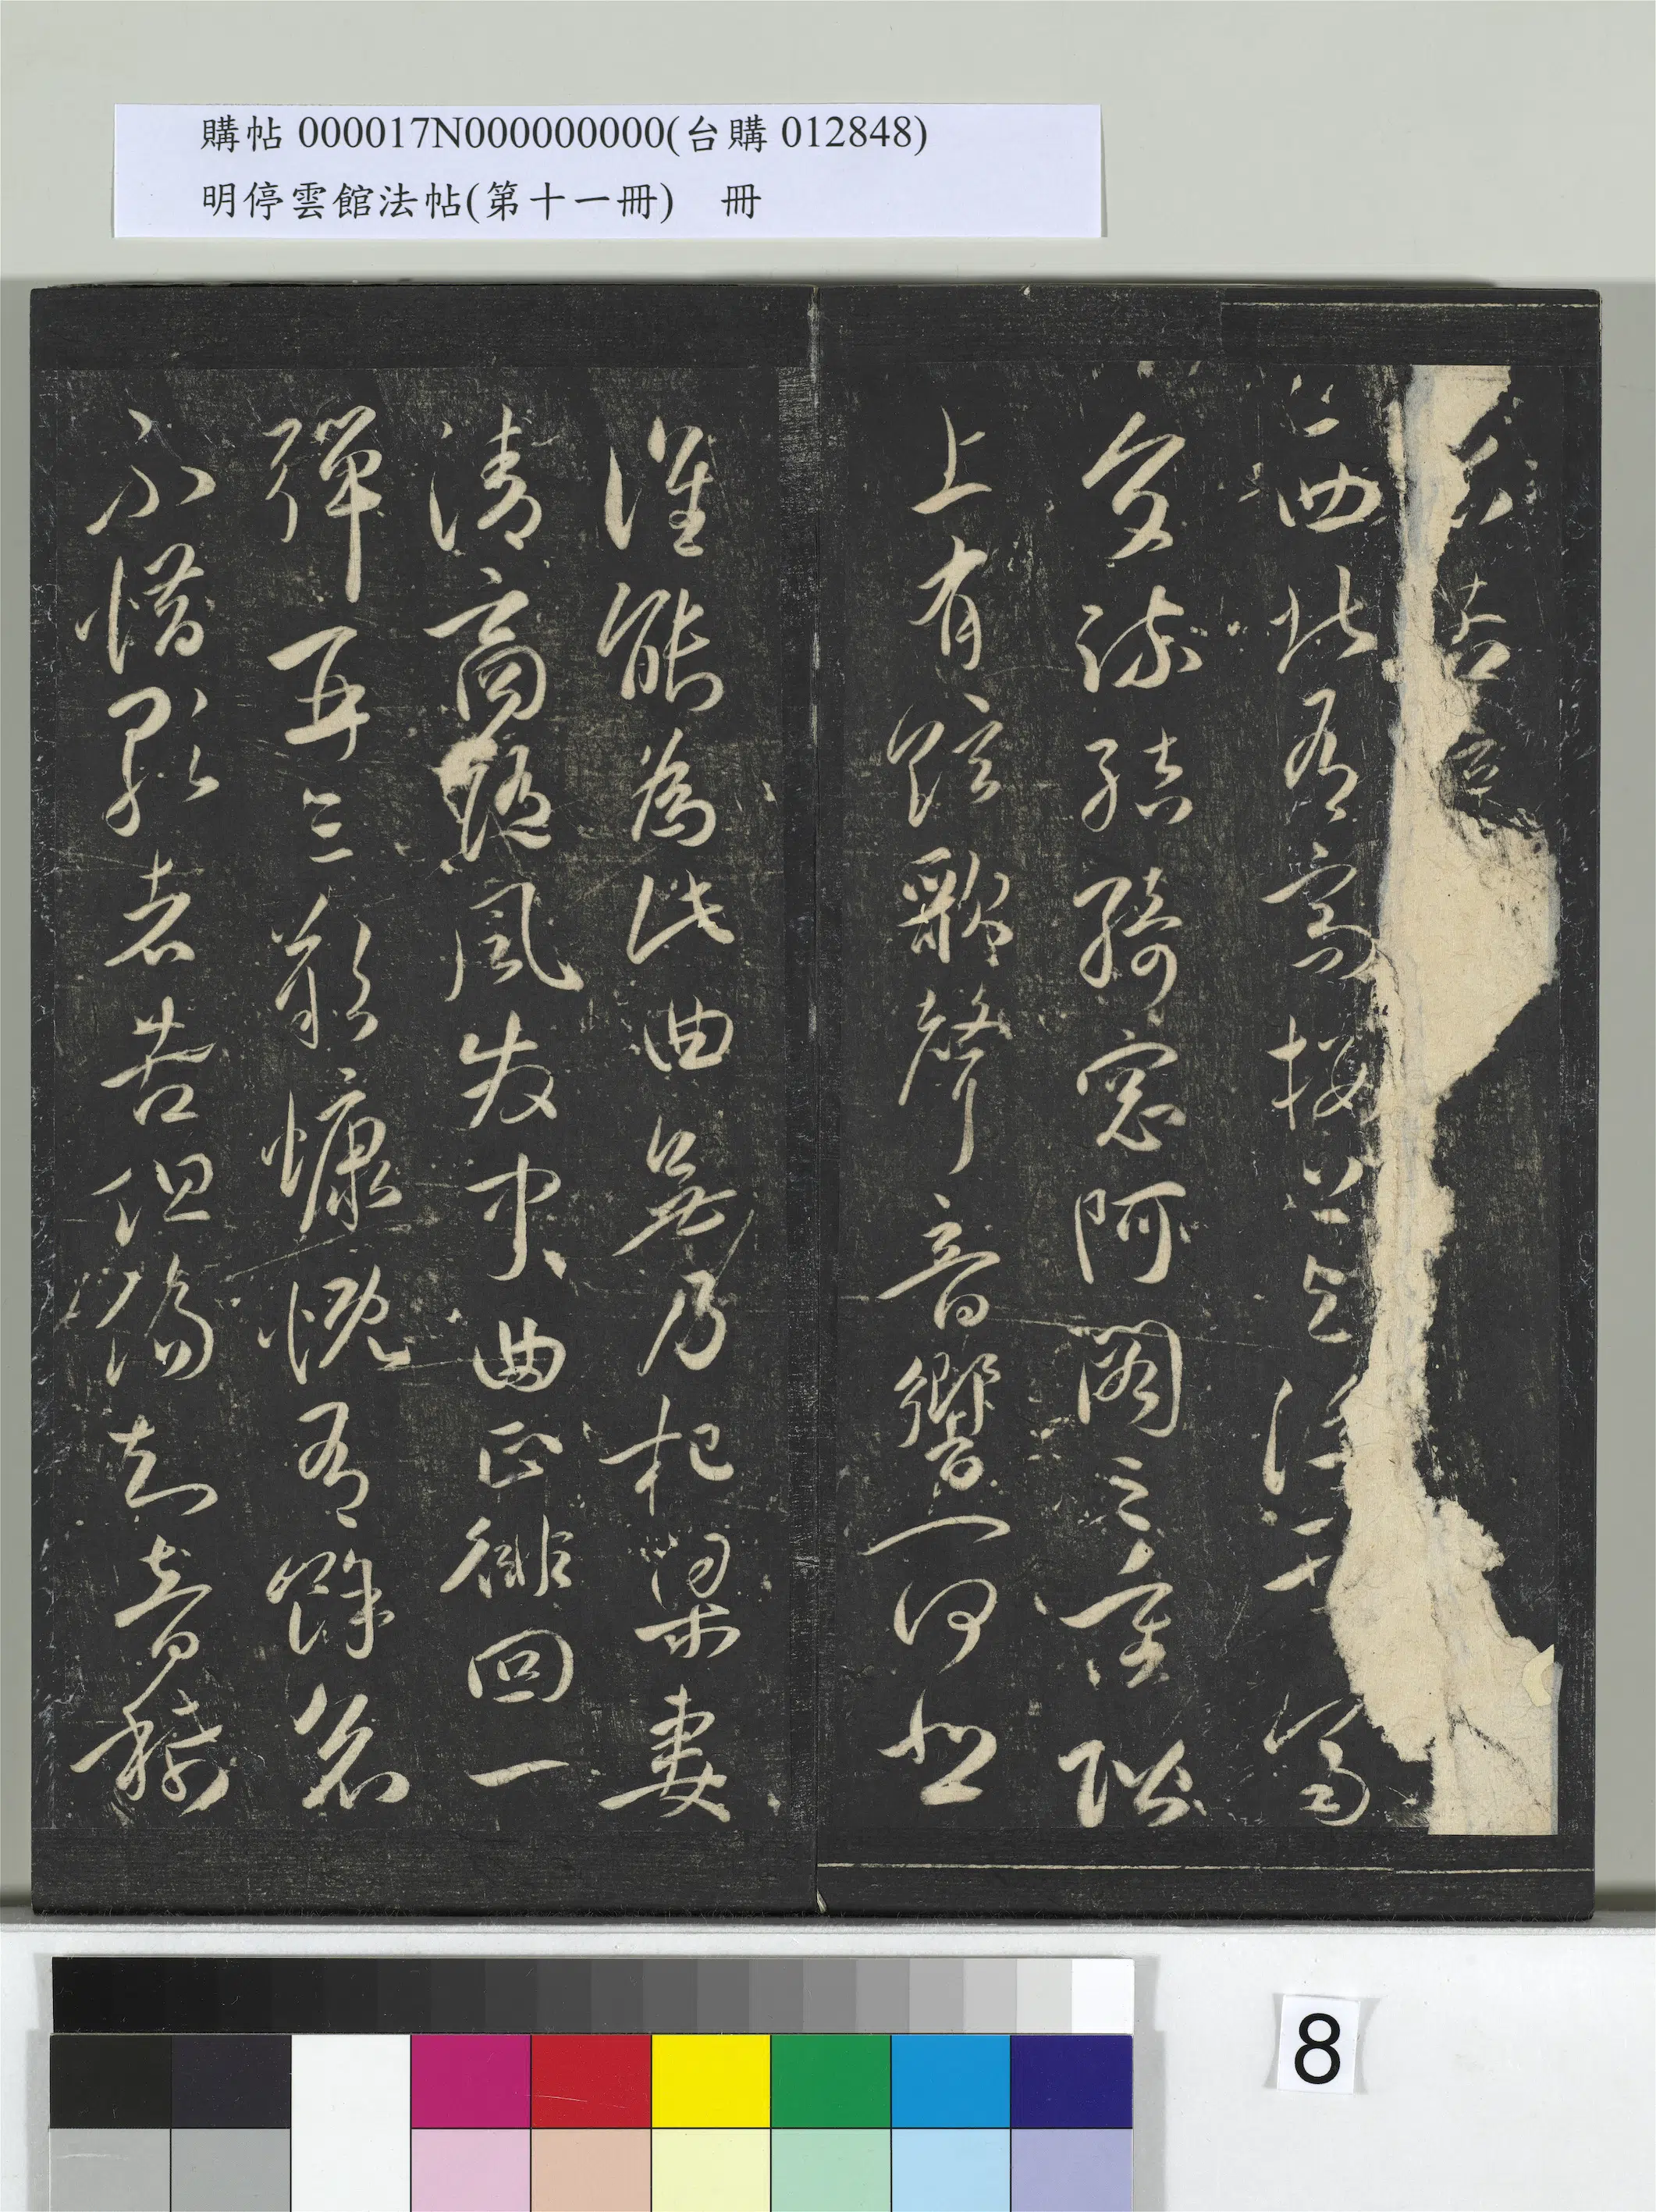 購帖 000017N000000000(台購 012848)
明停雲館法帖(第十一冊)　冊
右古
西北有高樓上與浮雲齊
交疏結綺窓阿閣三重階
上有弦歌聲音響一何悲
誰能為此曲無乃杞梁妻
清商隨風發中曲正徘回一
彈再三歎慷慨有餘哀
不惜歌者苦但傷知音稀
8